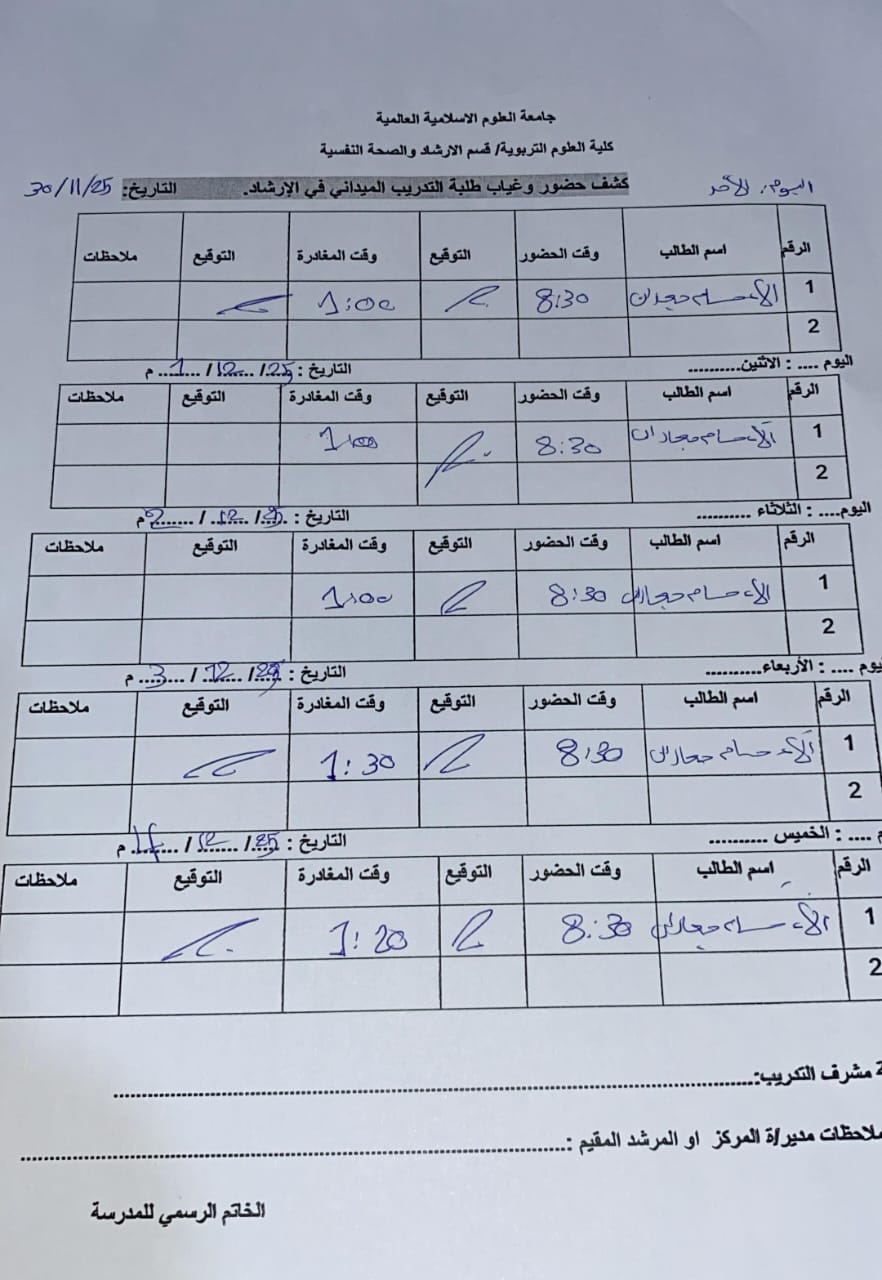 جامعة العلوم الاسلامية العالمية
كلية العلوم التربوية/ قسم الارشاد والصحة النفسية
اليوم: الأحد كشف حضور وغياب طلبة التدريب الميداني في الإرشاد. التاريخ: 30/11/25
الرقم اسم الطالب وقت الحضور التوقيع وقت المغادرة التوقيع ملاحظات
1 آلاء حسام 8:30 1:00
2
اليوم .... : الاثنين.......... التاريخ : 25/ 12 / 1 م
الرقم اسم الطالب وقت الحضور التوقيع وقت المغادرة التوقيع ملاحظات
1 آلاء حسام 8:30 1:00
2
اليوم.... : الثلاثاء .......... التاريخ : 25/ 12 / 2 م
الرقم اسم الطالب وقت الحضور التوقيع وقت المغادرة التوقيع ملاحظات
1 آلاء حسام 8:30 1:00
2
يوم .... : الأربعاء.......... التاريخ : 25/ 12 / 3 م
الرقم اسم الطالب وقت الحضور التوقيع وقت المغادرة التوقيع ملاحظات
1 آلاء حسام 8:30 1:30
2
م .... : الخميس .......... التاريخ : 25/ 12 / م
الرقم اسم الطالب وقت الحضور التوقيع وقت المغادرة التوقيع ملاحظات
1 آلاء حسام 8:30 1:20
2
مشرف التدريب:..........
ملاحظات مدير/ة المركز او المرشد المقيم :..........
الخاتم الرسمي للمدرسة